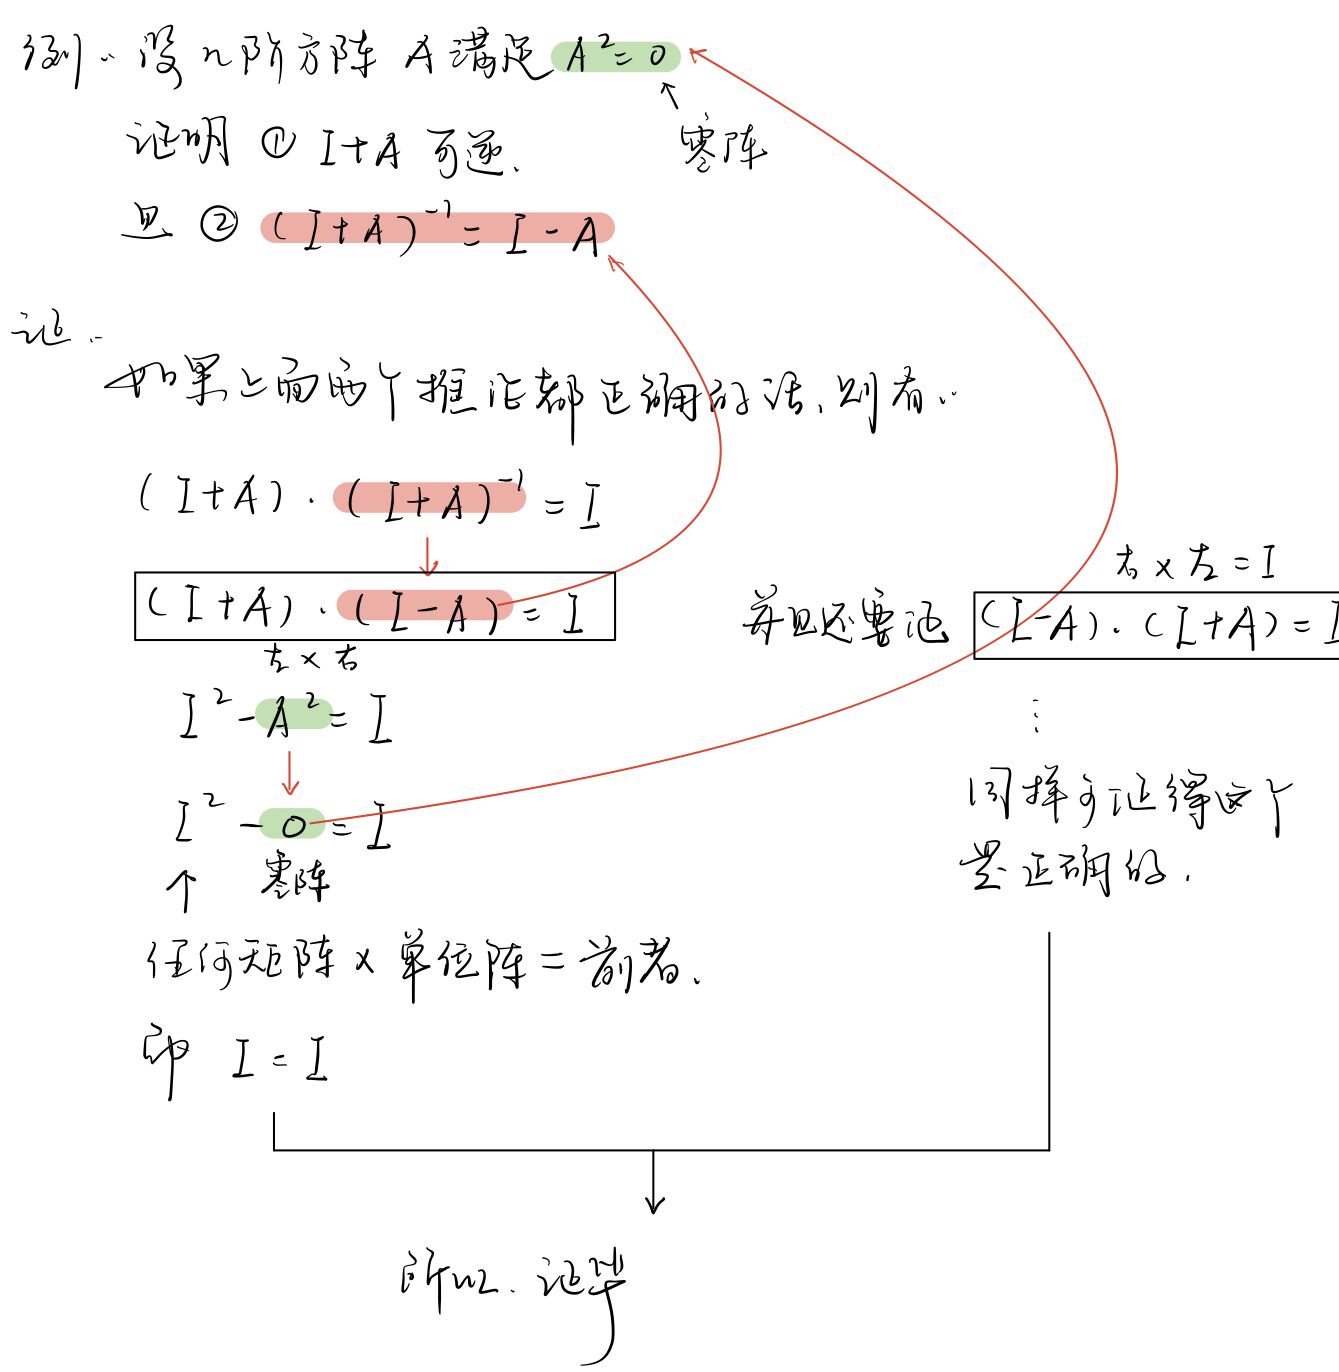 例:设n阶方阵 A满足 A²=0
零阵
证明 ① I+A 可逆.
且 ② (I+A)⁻¹ = I-A
证:
如果上面两个推论都正确的话,则有:
(I+A)·(I+A)⁻¹ = I
(I+A)·(I-A) = I
左×右
I²-A² = I
I²-0 = I
零阵
任何矩阵×单位阵=前者.
即 I = I
右×左=I
并且还要证 (I-A)·(I+A)=I
⋮
同样可证得这个
是正确的.
所以.证毕